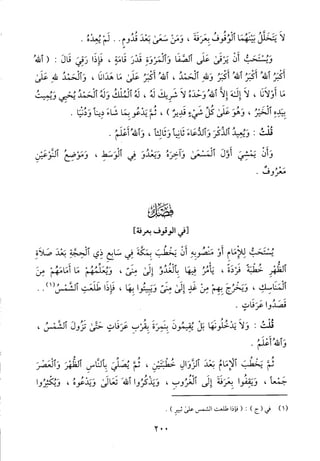 لا يَتَخَلَّلُ بَيْنَهُما الْوُقُوفُ بِعَرَفَةَ ، وَمَنْ سَعَىٰ بَعْدَ قُدُومٍ . . لَمْ يُعِدْهُ .
وَيُسْتَحَبُّ أَنْ يَرْقَىٰ عَلَى ٱلصَّفَا وَٱلْمَرْوَةِ قَدْرَ قَامَةٍ ، فَإِذَا رَقِيَ قَالَ : ( ٱللهُ
أَكْبَرُ ٱللهُ أَكْبَرُ ٱللهُ أَكْبَرُ وَللهِ ٱلْحَمْدُ ، ٱللهُ أَكْبَرُ عَلَىٰ مَا هَدَانَا ، وَٱلْحَمْدُ للهِ عَلَىٰ
مَا أَوْلاَنَا ، لاَ إِلَـٰهَ إِلاَّ ٱللهُ وَحْدَهُ لاَ شَرِيكَ لَهُ ، لَهُ ٱلْمُلْكُ وَلَهُ ٱلْحَمْدُ يُحْيِي وَيُمِيتُ
بِيَدِهِ ٱلْخَيْرُ ، وَهُوَ عَلَىٰ كُلِّ شَيْءٍ قَدِيرٌ ) ، ثُمَّ يَدْعُو بِمَا شَاءَ دِيناً وَدُنْيَا .
قُلْتُ : وَيُعِيدُ ٱلذِّكْرَ وَٱلدُّعَاءَ ثَانِياً وَثَالِثاً ، وَٱللهُ أَعْلَمُ .
وَأَنْ يَمْشِيَ أَوَّلَ ٱلْمَسْعَىٰ وَآخِرَهُ وَيَعْدُوَ فِي ٱلْوَسَطِ ، وَمَوْضِعُ ٱلنَّوْعَيْنِ
مَعْرُوفٌ .
فَصْلٌ
[في الوقوف بعرفة]
يُسْتَحَبُّ لِلإِمَامِ أَوْ مَنْصُوبِهِ أَنْ يَخْطُبَ بِمَكَّةَ فِي سَابِعِ ذِي ٱلْحِجَّةِ بَعْدَ صَلاَةِ
ٱلظُّهْرِ خُطْبَةً فَرْدَةً ، يَأْمُرُ فِيهَا بِٱلْغُدُوِّ إِلَىٰ مِنىً ، وَيُعَلِّمُهُمْ مَا أَمَامَهُمْ مِنَ
ٱلْمَنَاسِكِ ، وَيَخْرُجَ بِهِمْ مِنْ غَدٍ إِلَىٰ مِنىً وَيَبِيتُوا بِهَا ، فَإِذَا طَلَعَتِ ٱلشَّمْسُ(١) . .
قَصَدُوا عَرَفَاتٍ .
قُلْتُ : وَلاَ يَدْخُلُونَهَا بَلْ يُقِيمُونَ بِنَمِرَةَ بِقُرْبِ عَرَفَاتٍ حَتَّىٰ تَزُولَ ٱلشَّمْسُ ،
وَٱللهُ أَعْلَمُ .
ثُمَّ يَخْطُبُ ٱلإِمَامُ بَعْدَ ٱلزَّوَالِ خُطْبَتَيْنِ ، ثُمَّ يُصَلِّي بِٱلنَّاسِ ٱلظُّهْرَ وَٱلْعَصْرَ
جَمْعاً ، وَيَقِفُوا بِعَرَفَةَ إِلَى ٱلْغُرُوبِ ، وَيَذْكُرُوا ٱللهَ تَعَالَىٰ وَيَدْعُوهُ ، وَيُكْثِرُوا
(١) في (ج) : ( فإذا طلعت الشمس علىٰ ثبير ) .
٢٠٠